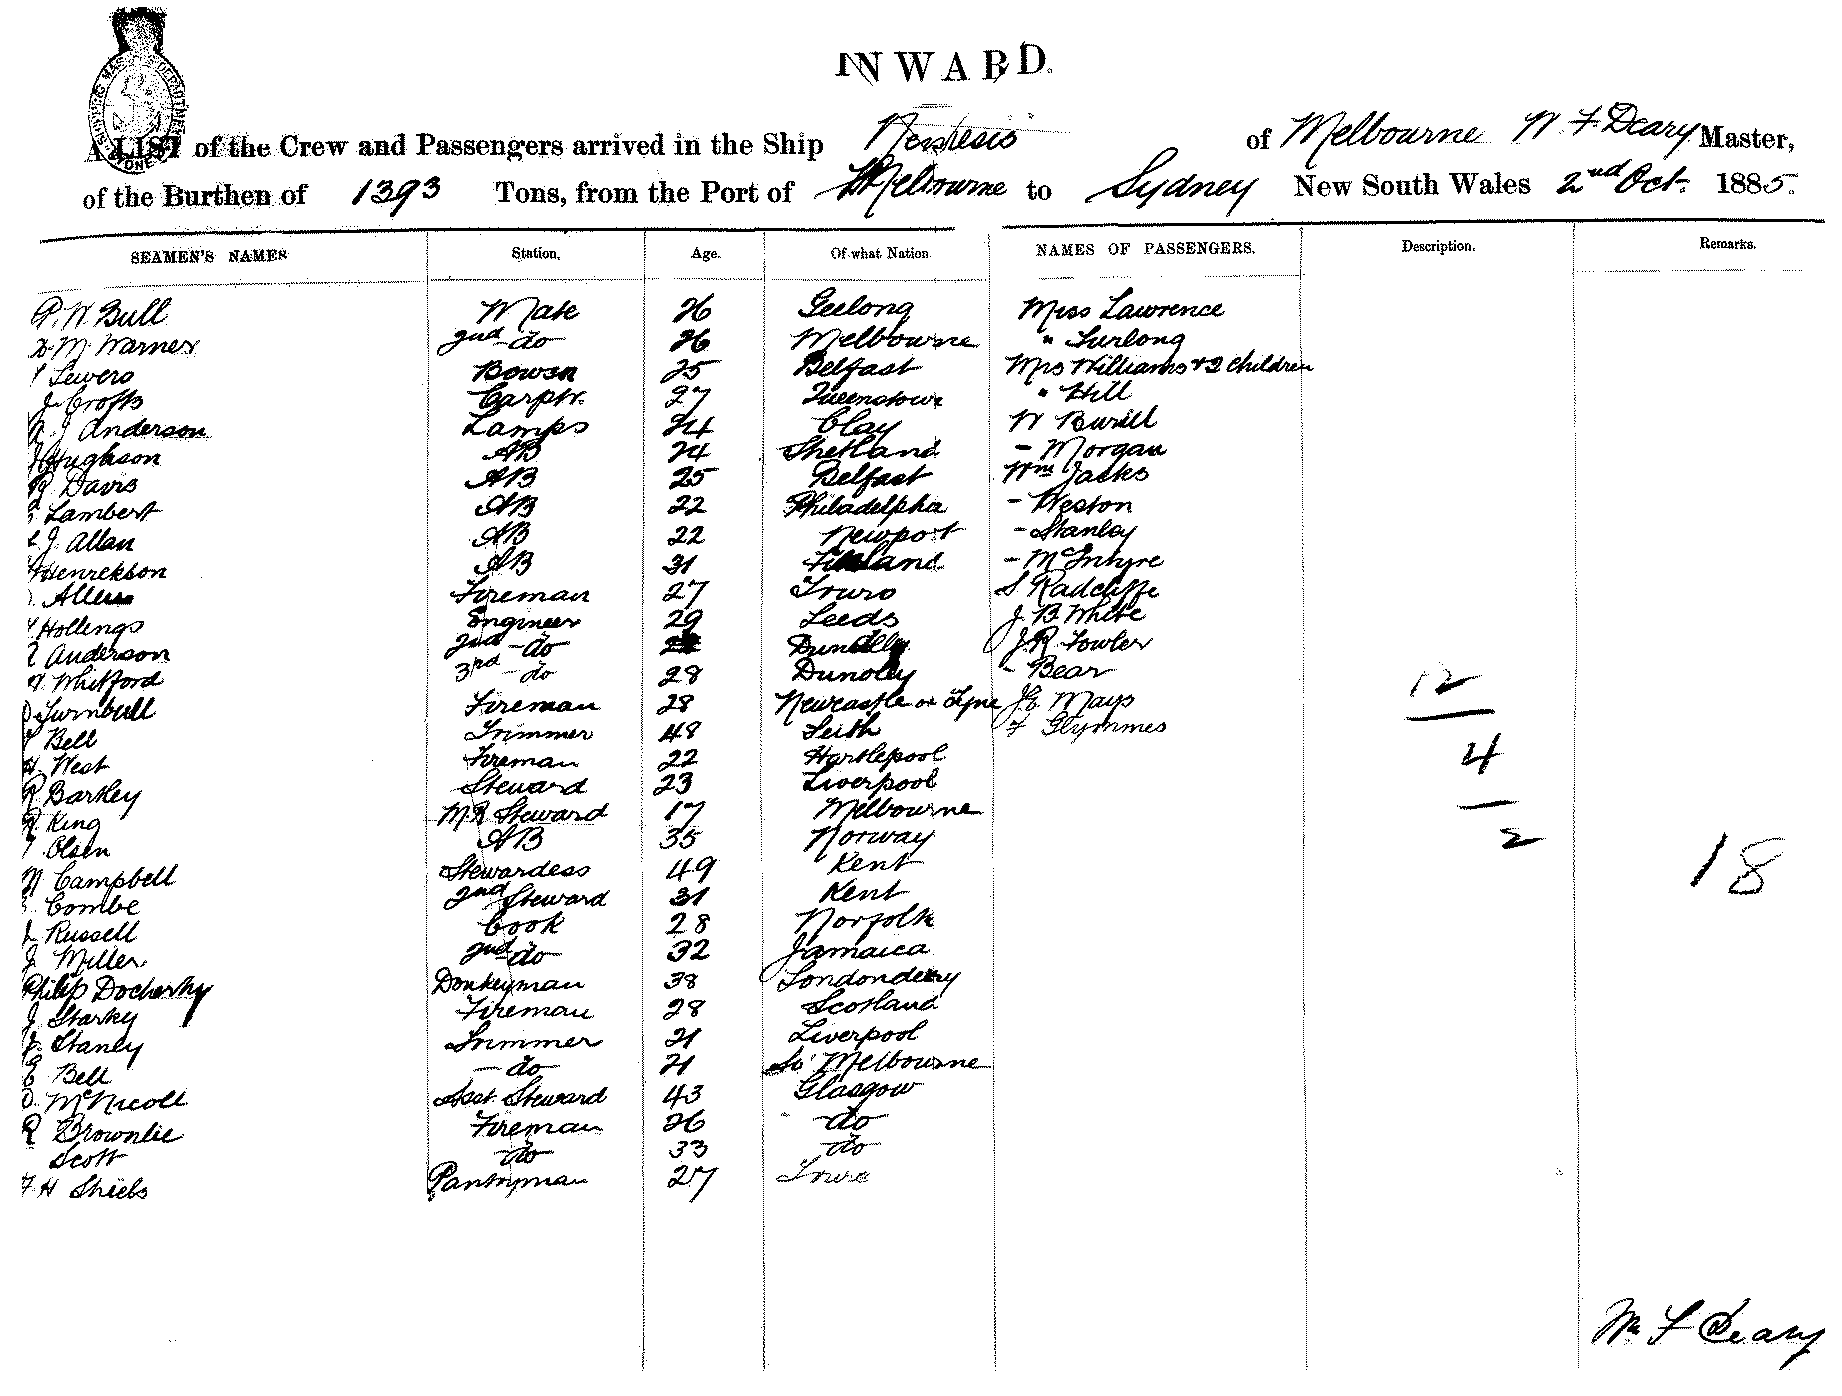 INWARD.
A LIST of the Crew and Passengers arrived in the Ship Nemesis of Melbourne W F Deary Master,
of the Burthen of 1393 Tons, from the Port of Melbourne to Sydney New South Wales 2nd Oct. 1885.
SEAMEN'S NAMES Station. Age. Of what Nation. NAMES OF PASSENGERS. Description. Remarks.
P. W Bull Mate 26 Geelong Miss Lawrence
M Warner 2nd do 26 Melbourne " Furlong
Sewers Bowsn 25 Belfast Mrs Williams + 2 children
J Crofts Carptr. 27 Queenstown " Hill
J Anderson Lamps 24 Clay W Burill
Hughson AB 24 Shetland - Morgan
Davis AB 25 Belfast Wm Jacks
Lambert AB 22 Philadelphia - Weston
J. Allan AB 22 Newport - Stanley
Henrekson AB 31 Finland - McIntyre
Allen Fireman 27 Truro S Radcliffe
Hollings Engineer 29 Leeds J B White
Anderson 2nd do Dunolly J. R. Fowler
Whitford 3rd do 28 Dunolly - Bear
Turnbull Fireman 28 Newcastle on Tyne Mays
Bell Trimmer 48 Leith F Glymmes
West Fireman 22 Hartlepool
R Barkley Steward 23 Liverpool
King M R Steward 17 Melbourne
Olsen AB 35 Norway
Campbell Stewardess 49 Kent
Combe 2nd Steward 31 Kent
Russell Cook 28 Norfolk
J Miller 2nd do 32 Jamaica
Philip Docherty Donkeyman 38 Londonderry
J Starky Fireman 28 Scotland
J. Stanley Trimmer 21 Liverpool
E Bell do 21 So Melbourne
D. McNicoll Asst. Steward 43 Glasgow
R Brownlie Fireman 26 do
Scott do 33 do
F H Shiels Pantryman 27 Truro
12
4
2
18
Wm F Deary